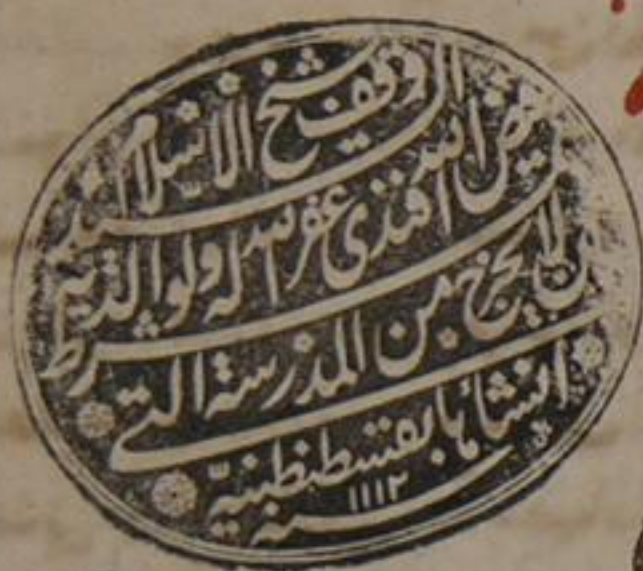 وقف شيخ الاسلام السيد
فيض الله افندى غفر الله له ولوالديه
بشرط ان لا يخرج من المدرسة التي
انشأها بقسطنطينية
سنه ١١١٢